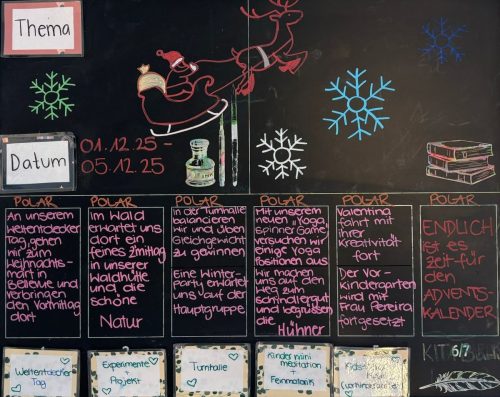 Thema
Datum
01.12.25 -
05.12.25
POLAR
An unserem
Weltentdecker
Tag gehen
wir zum
Weihnachts-
markt in
Bellevue und
verbringen
den Vormittag
dort
POLAR
im Wald
erwartet uns
dort ein
feines Zmittag
in unserer
Waldhütte
und die
schöne
Natur
POLAR
in der Turnhalle
balancieren
wir und üben
Gleichgewicht
zu gewinnen
Eine Winter-
party erwartet
uns auf der
Hauptgruppe
POLAR
Mit unserem
neuen Yoga
spinner Game
versuchen wir
einige Yoga
Positionen aus
Wir machen
uns auf den
Weg zum
Schindlergut
und begrüssen
die
Hühner
POLAR
Valentina
fährt mit
ihrer
Kreativität
fort
Der Vor-
kindergarten
wird mit
Frau Pereira
fortgesetzt
POLAR
ENDLICH
ist es
Zeit für
den
ADVENTS-
KALENDER
Weltentdecker
Tag
Experimente
+
Projekt
Turnhalle
Kinder
meditation
+
Feinmotorik
Kids-
KITA
6/7